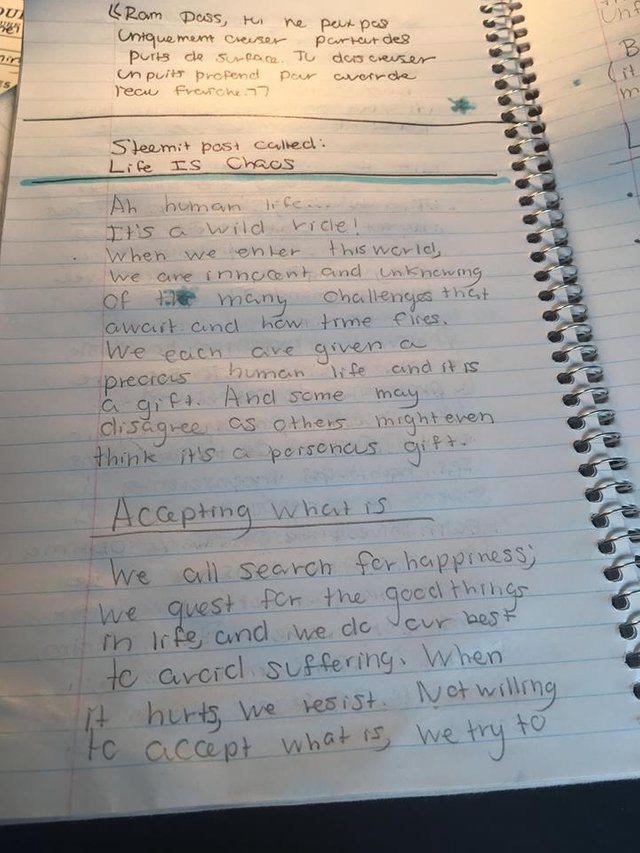 «Ram Dass, tu ne peux pas
uniquement creuser partout des
puits de surface. Tu dois creuser
un puits profond pour avoir de
l'eau fraiche.»
Steemit post called:
Life Is Chaos
Ah human life...
It's a wild ride!
When we enter this world,
We are innocent and unknowing
of the many challenges that
await and how time flies.
We each are given a
precious human life and it is
a gift. And some may
disagree as others might even
think it's a poisonous gift.
Accepting What is
We all search for happiness;
We quest for the good things
in life, and we do our best
to avoid suffering. When
it hurts, we resist. Not willing
to accept what is, we try to